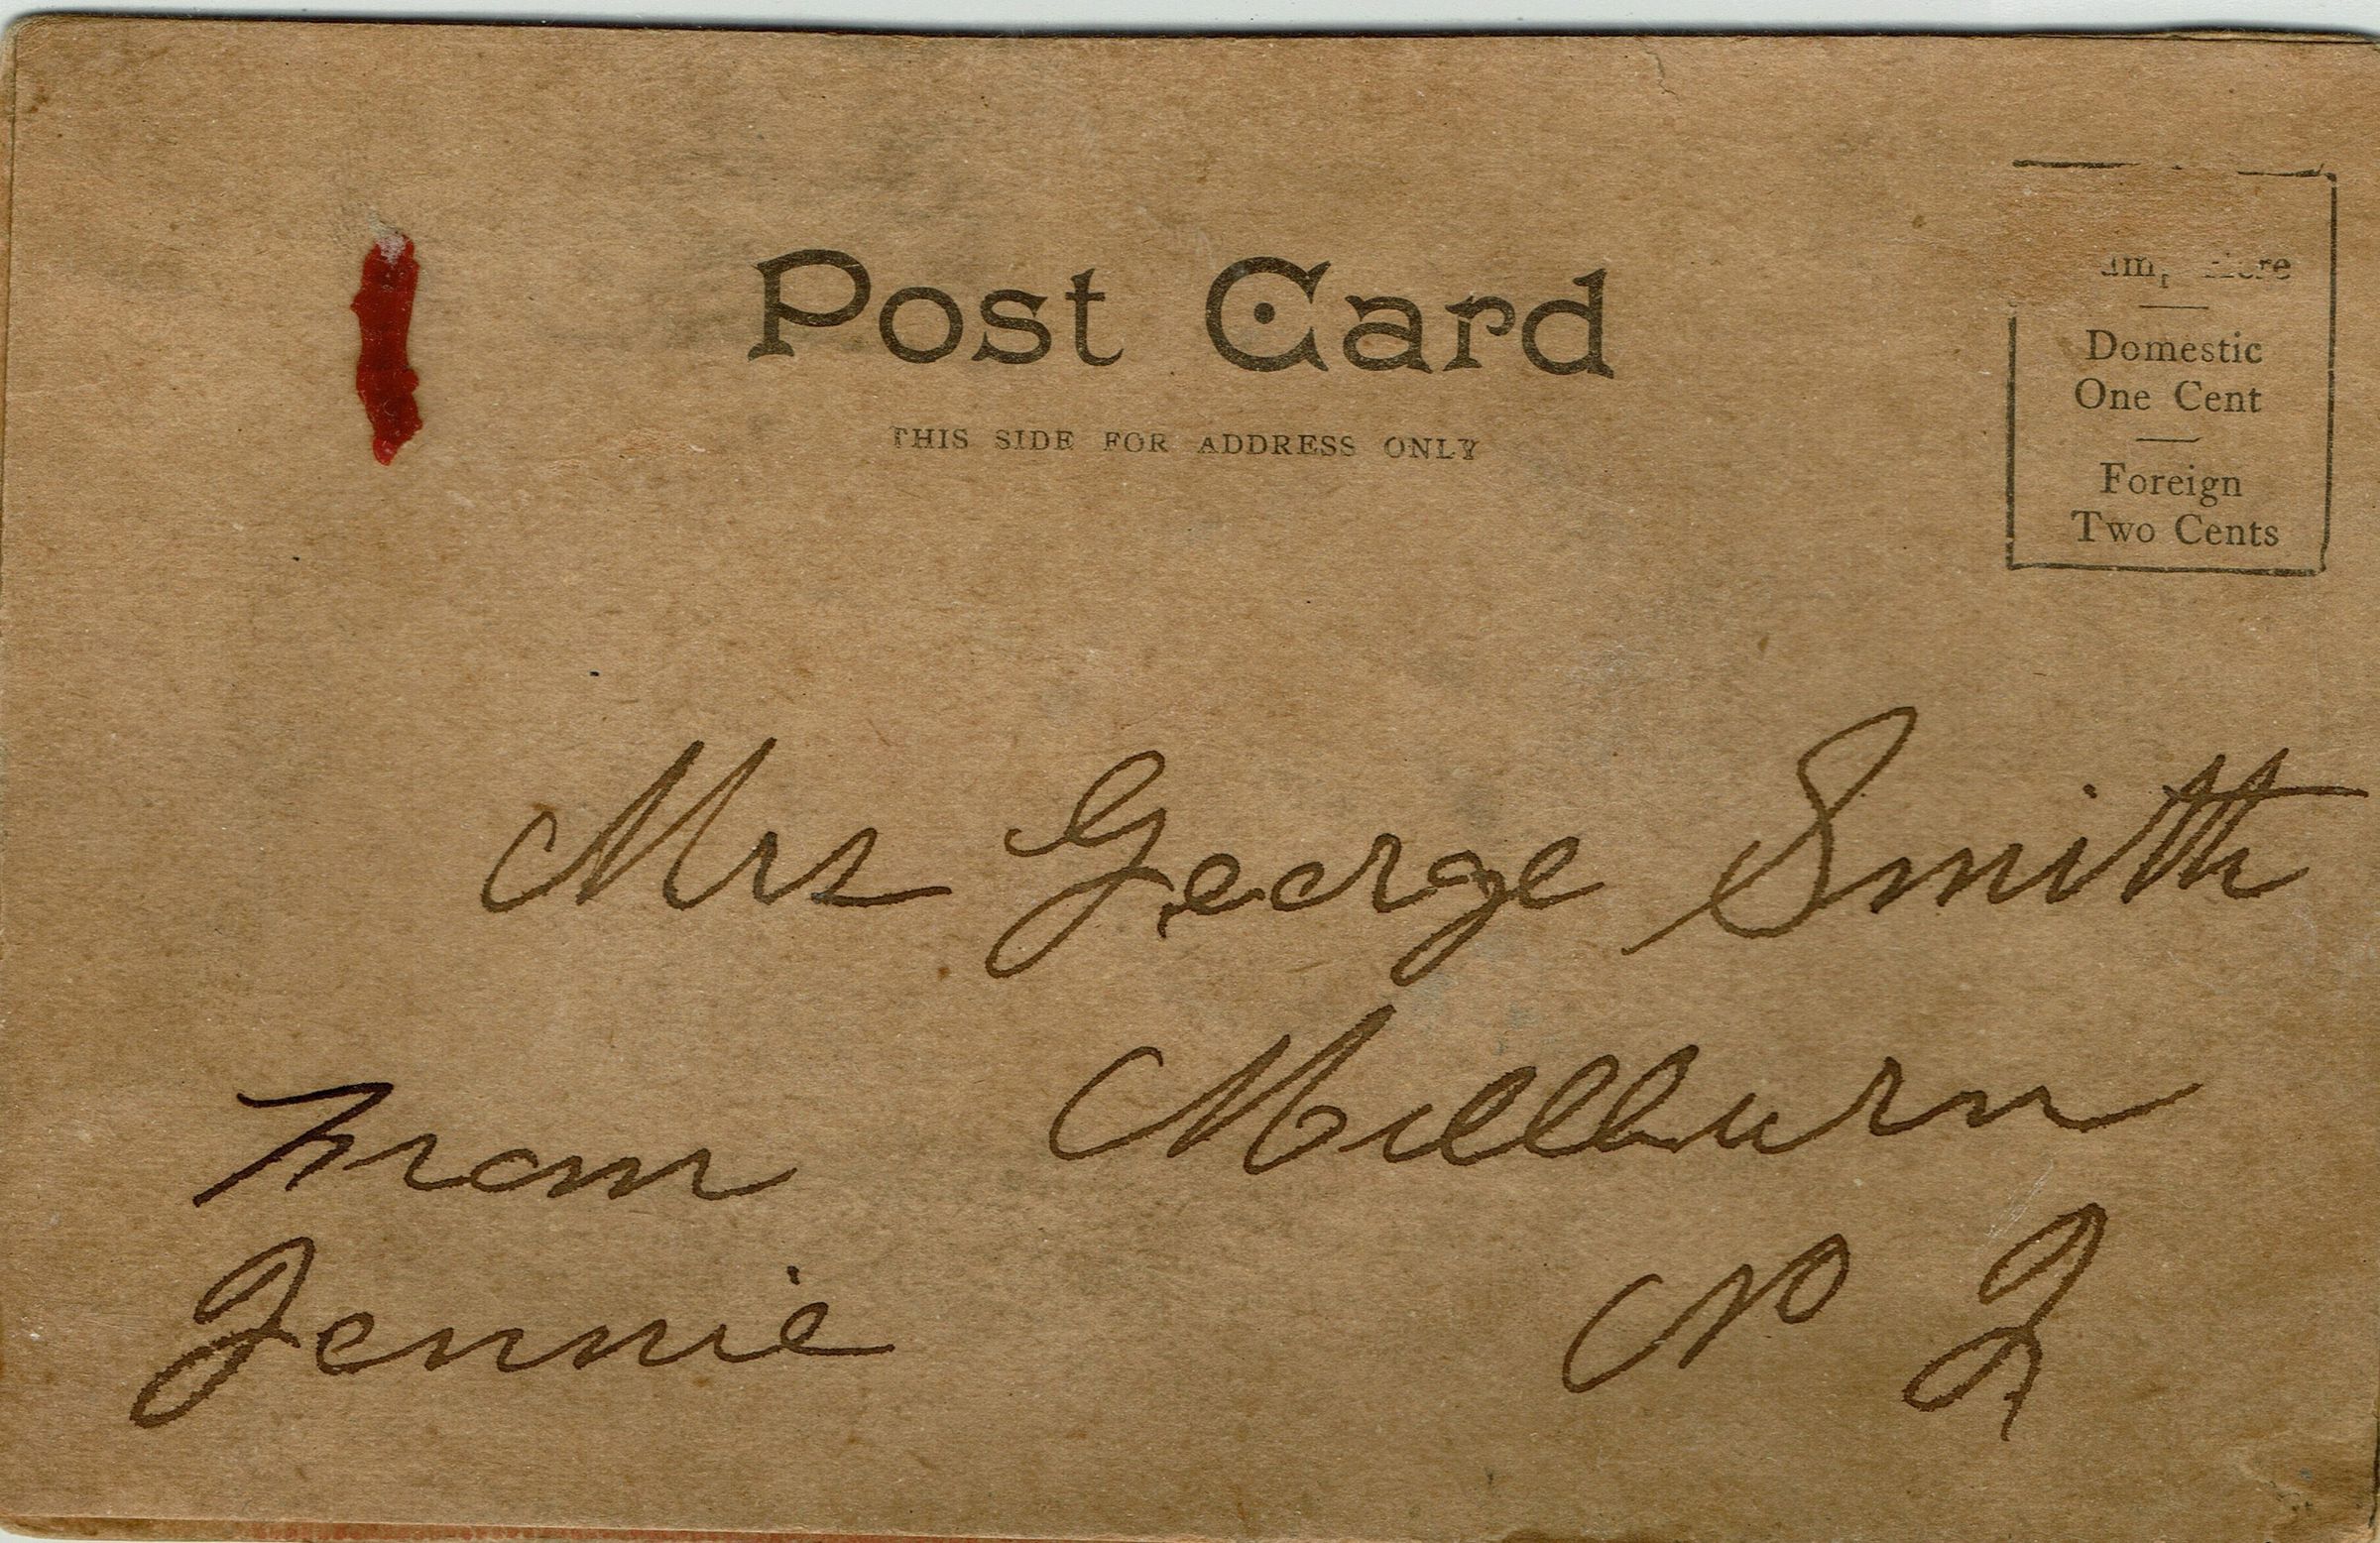 Post Card
THIS SIDE FOR ADDRESS ONLY
Here
Domestic
One Cent
Foreign
Two Cents
Mrs George Smith
Millburn
N J
From
Jennie